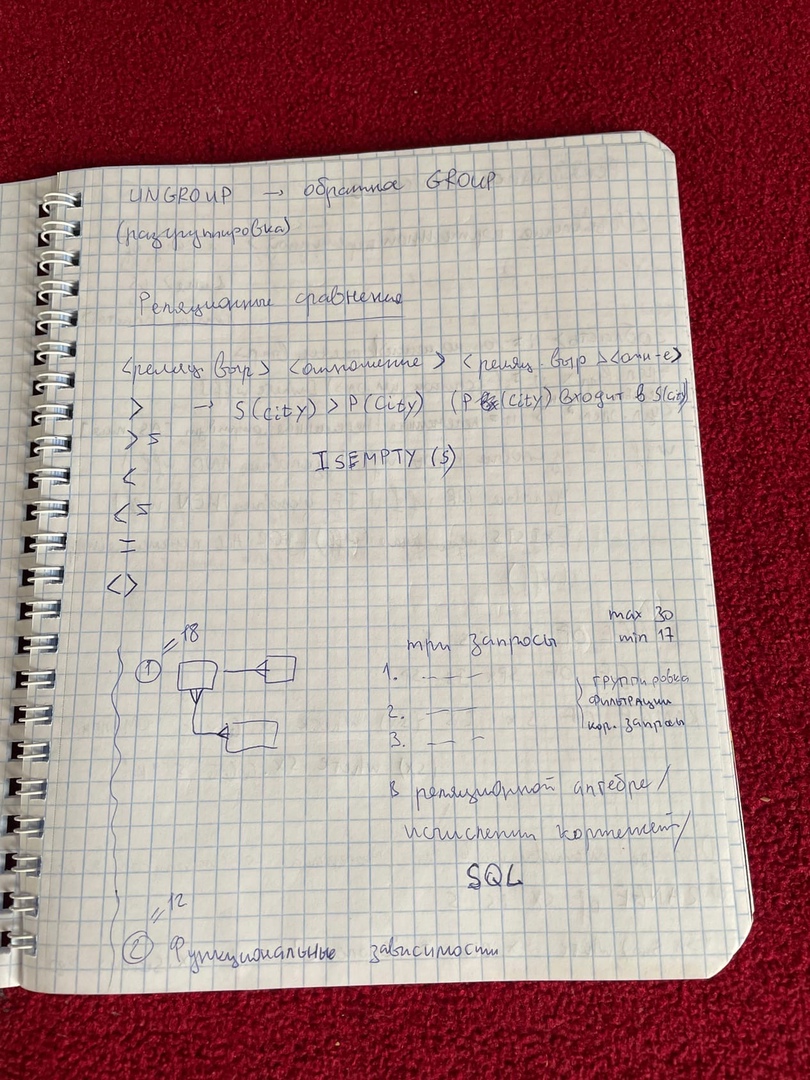 UNGROUP → обратное GROUP
(разгруппировка)
Реляционные сравнение
<реляц. выр> <отношение> <реляц. выр> <отн-е>
> → S(City) > P(City) (P (City) входит в S(City)
>=
ISEMPTY (S)
<
<=
=
<>
1 // 18
max 30
три запросы min 17
1. — — — группировка
2. — — фильтрации
3. — — - кор. запросы
в реляционной алгебре/
исчислении кортежей/
SQL
// 12
2 Функциональные зависимости